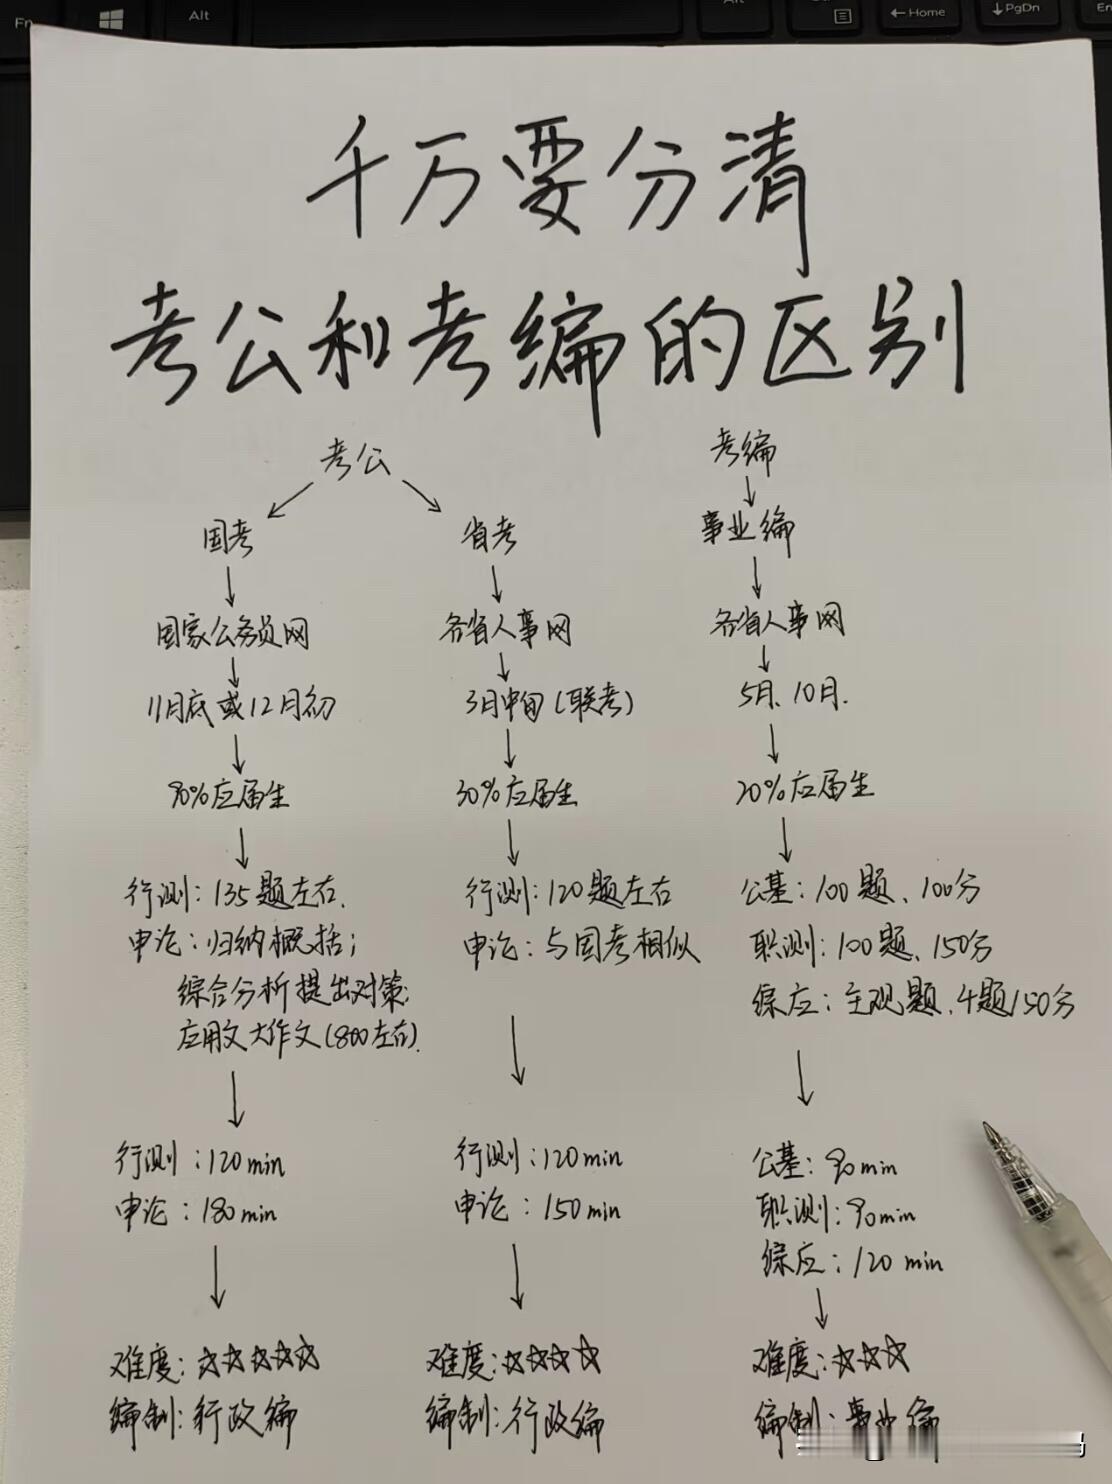 千万要分清
考公和考编的区别
考公
国考
国家公务员网
11月底或12月初
90%应届生
行测：135题左右.
申论：归纳概括；
综合分析提出对策；
应用文大作文(800左右).
行测：120min
申论：180min
难度：☆☆☆☆☆
编制：行政编
省考
各省人事网
3月中旬(联考)
30%应届生
行测：120题左右
申论：与国考相似
行测：120min
申论：150min
难度：☆☆☆☆
编制：行政编
考编
事业编
各省人事网
5月、10月.
20%应届生
公基：100题、100分
职测：100题、150分
综应：主观题、4题150分
公基：90min
职测：90min
综应：120min
难度：☆☆☆
编制：事业编
Fn
Alt
Home
PgDn